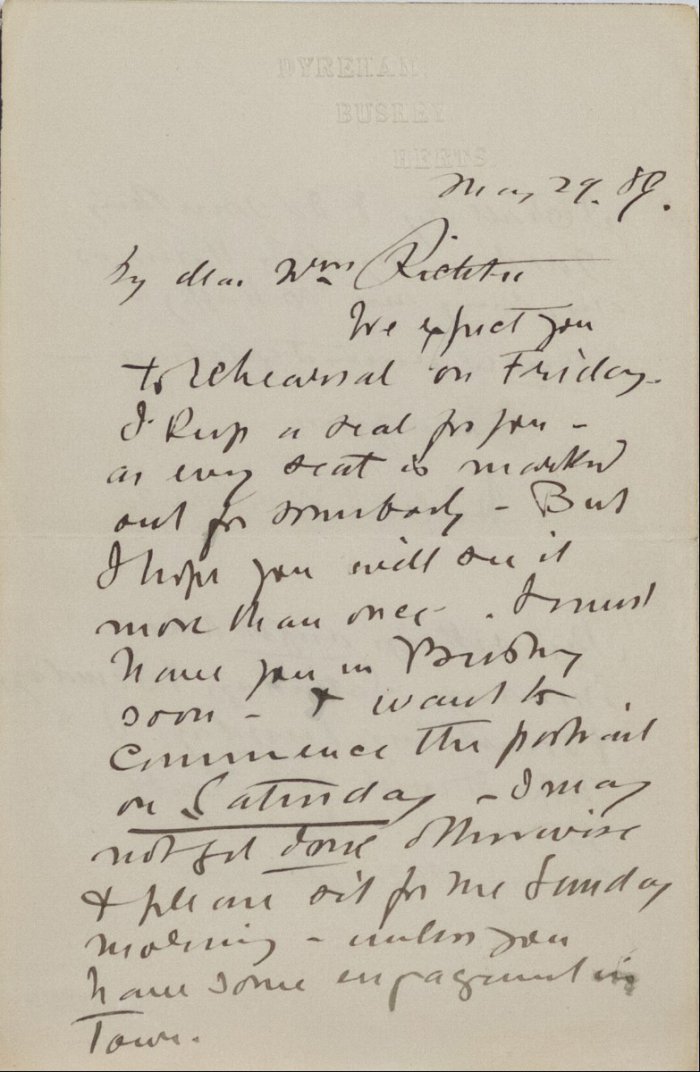 DYREHAM,
BUSHEY
HERTS.
May 29. 89.
My dear Richter
We expect you
to rehearsal on Friday.
I keep a seat for you -
as every seat is marked
out for somebody - But
I hope you will see it
more than once - . I must
have you in Bushey
soon - & want to
commence the portrait
on Saturday - I may
not get done otherwise
& please sit for me Sunday
morning - unless you
have some engagement in
Town.